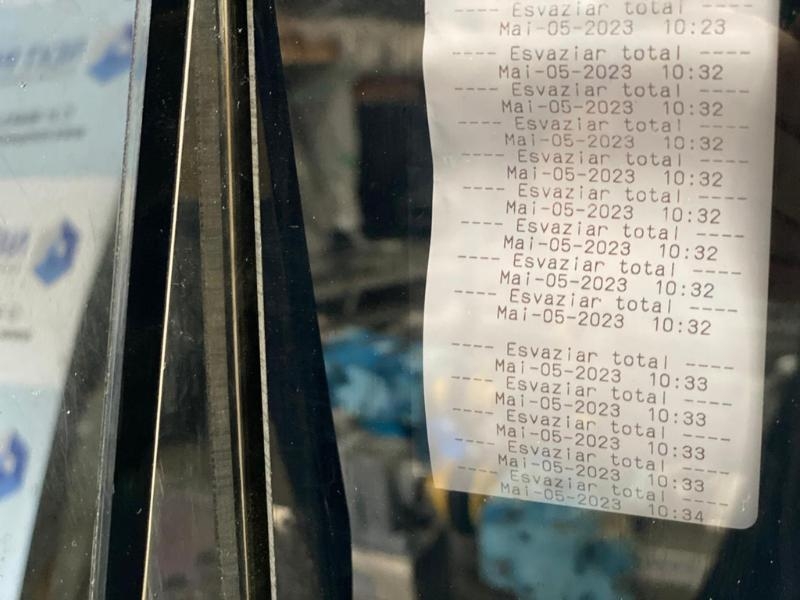 ---- Esvaziar total ----
Mai-05-2023 10:23
---- Esvaziar total ----
Mai-05-2023 10:32
---- Esvaziar total ----
Mai-05-2023 10:32
---- Esvaziar total ----
Mai-05-2023 10:32
---- Esvaziar total ----
Mai-05-2023 10:32
---- Esvaziar total ----
Mai-05-2023 10:32
---- Esvaziar total ----
Mai-05-2023 10:32
---- Esvaziar total ----
Mai-05-2023 10:32
---- Esvaziar total ----
Mai-05-2023 10:32
---- Esvaziar total ----
Mai-05-2023 10:33
---- Esvaziar total ----
Mai-05-2023 10:33
---- Esvaziar total ----
Mai-05-2023 10:33
---- Esvaziar total ----
Mai-05-2023 10:33
---- Esvaziar total ----
Mai-05-2023 10:34